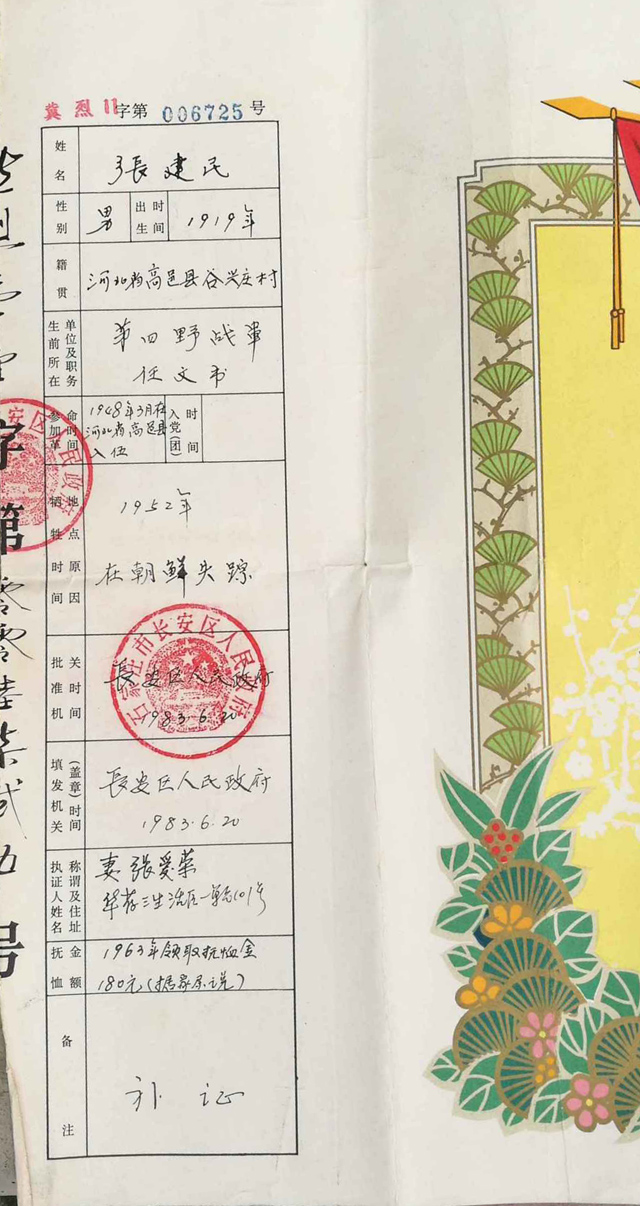 冀烈11字第006725号
姓名
張建民
性别
男
出生时间
1919年
籍贯
河北省高邑县谷兴庄村
生前所在单位及职务
第四野战軍
任文书
参加革命时间
1948年3月在
河北省高邑县
入伍
入党(团)时间
牺牲时间地点原因
1952年
在朝鲜失踪
批准机关时间
長安区人民政府
1983.6.20
石家庄市长安区人民政府
填发机关(盖章)时间
長安区人民政府
1983.6.20
执证人姓名称谓及住址
妻 張爱荣
华药三生活区一单元101号
抚恤金额
1963年领取抚恤金
180元(据家属说)
备注
补证
安区人民政
字第
零零陆柒贰伍
号